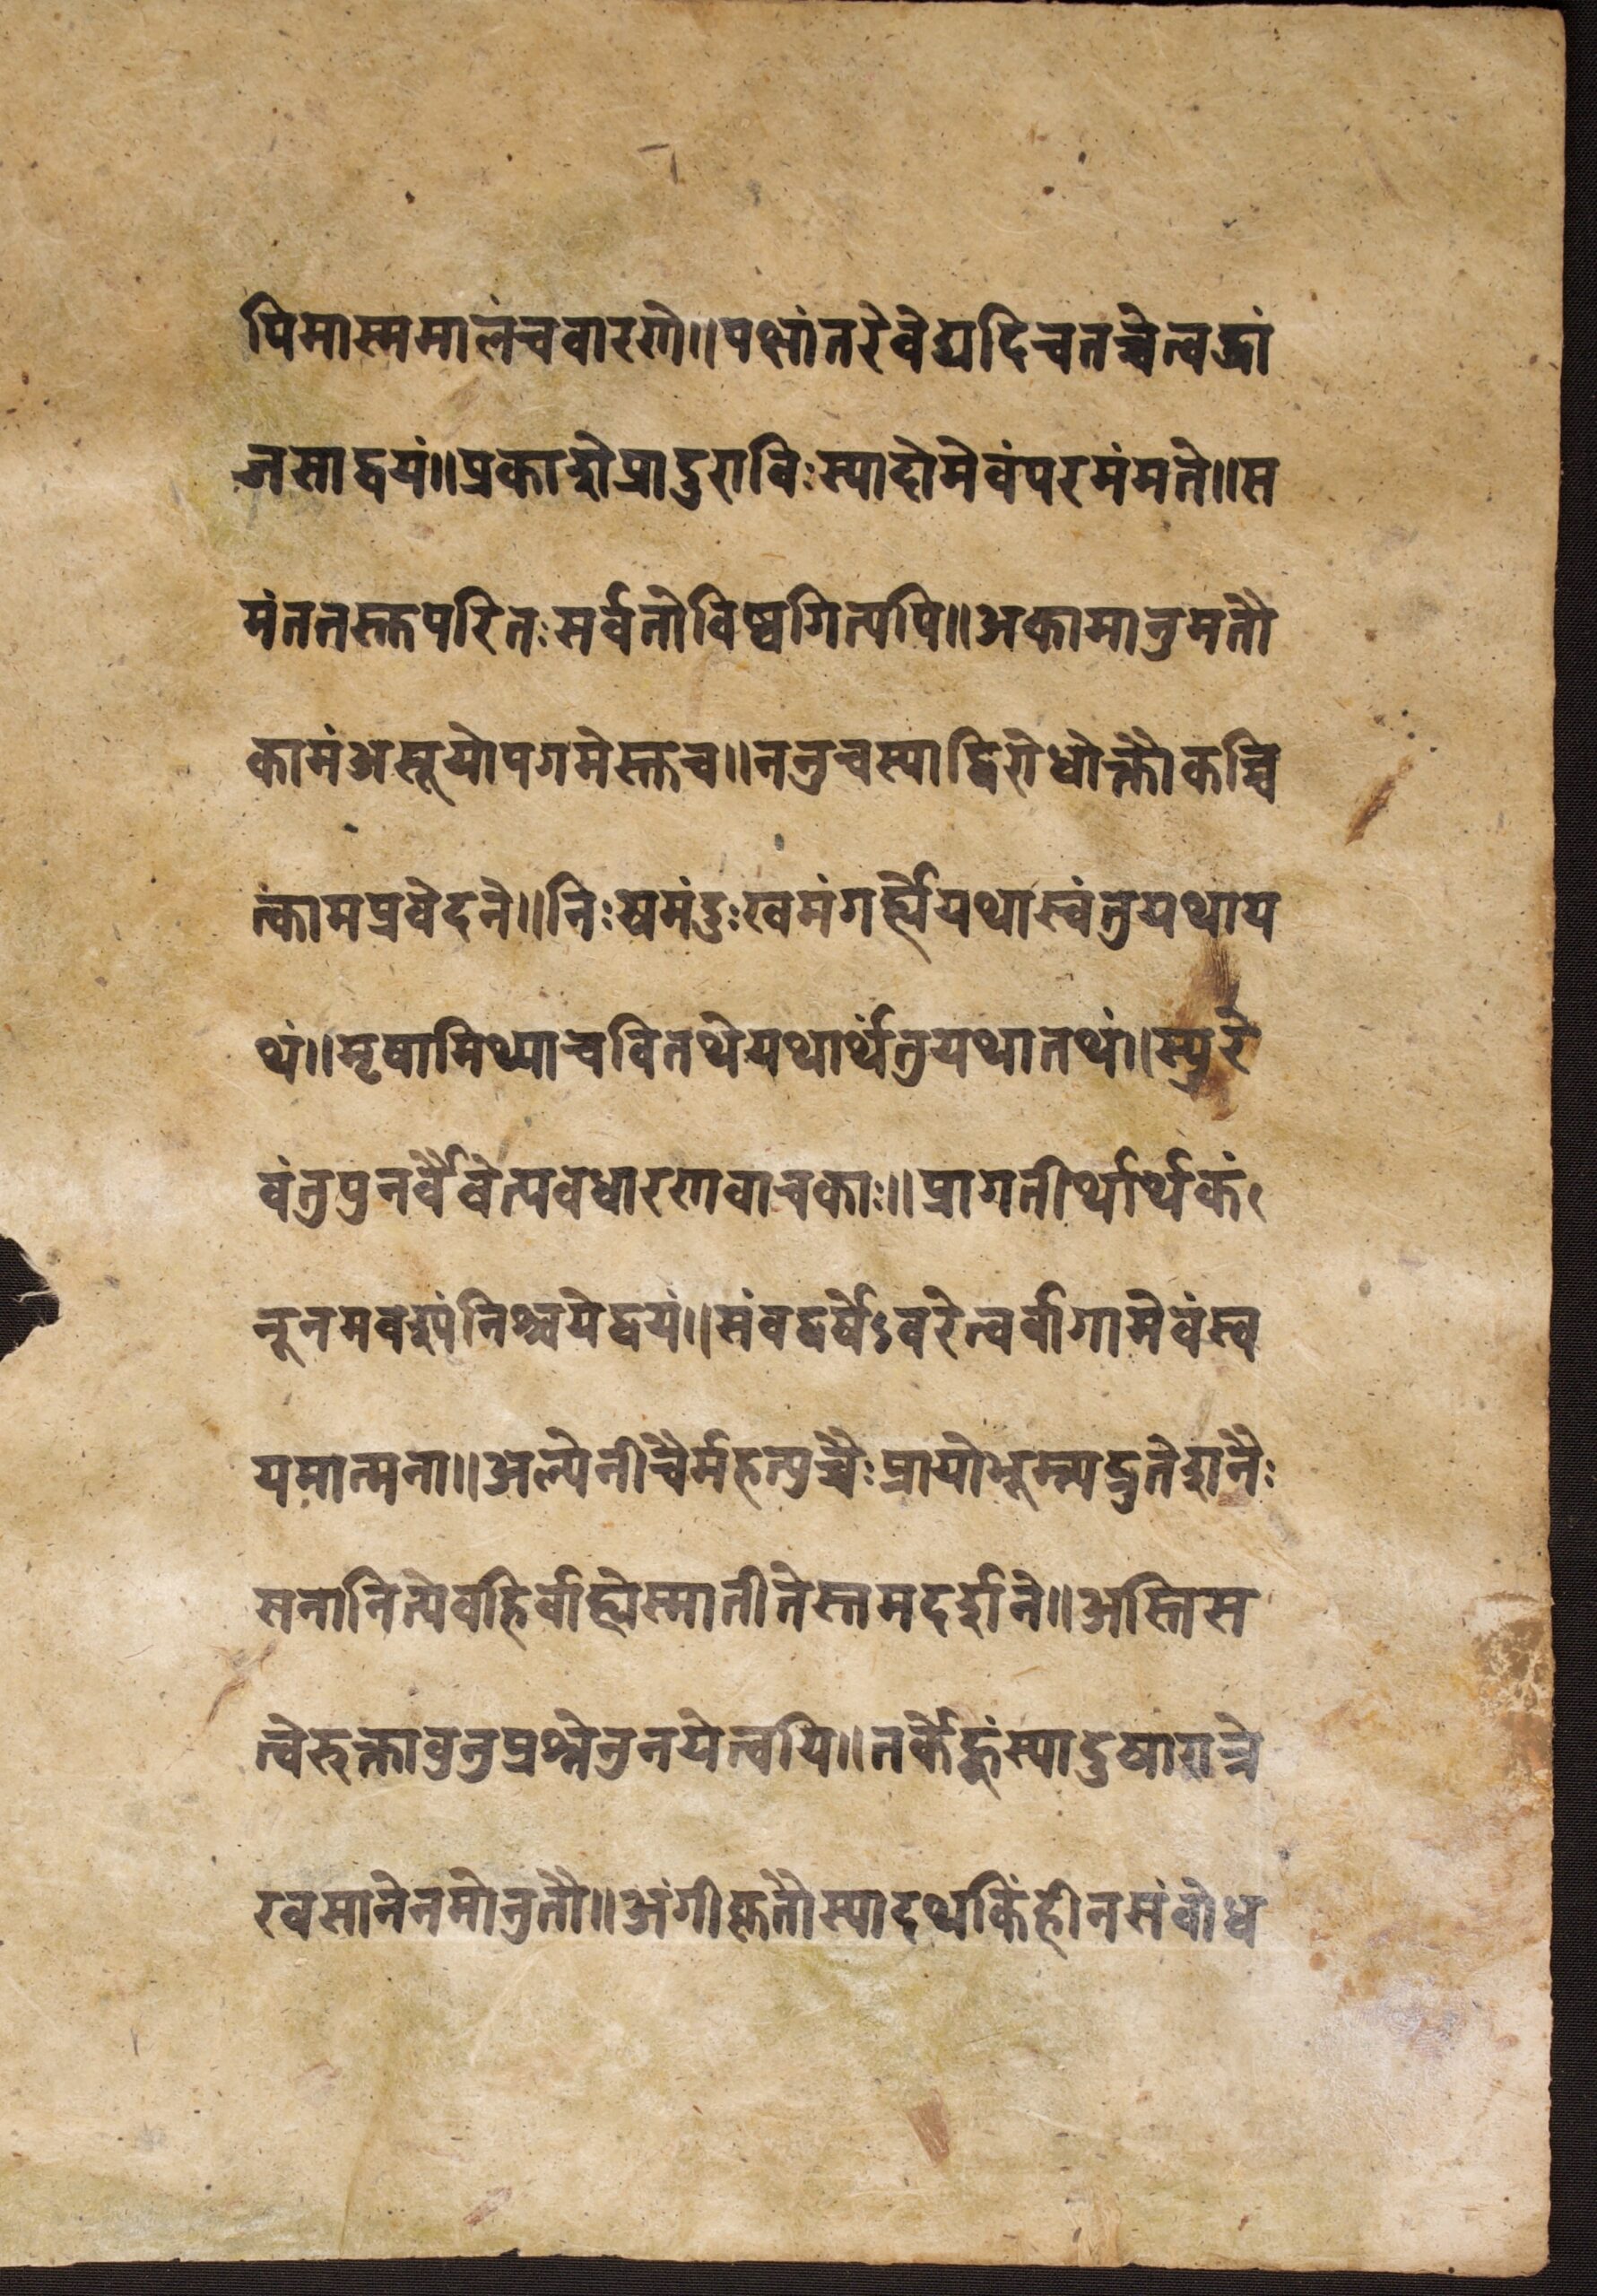 पिमास्ममालंचवारणे॥पक्षांतरेवेद्यदिचतत्त्वेत्वद्धां
जसाद्वयं॥प्रकाशेप्रादुराविःस्यादोमेवंपरमंमते॥स
मंततस्तुपरितःसर्वतोविष्वगित्यपि॥अकामानुमतौ
कामंअसूयोपगमेस्तुच॥ननुचस्याद्विरोधोक्तौकच्चि
त्कामप्रवेदने॥निःषमंदुःखमंगर्ह्येयथास्वंतुयथाय
थं॥मृषामिथ्याचवितथेयथार्थंतुयथातथं॥स्युरे
वंतुपुनर्वैवेत्यवधारणवाचकाः॥प्रागतीर्थार्थकं
नूनमवश्यंनिश्चयेद्वयं॥संवद्वर्षेऽवरेत्वर्वागामेवंस्व
यमात्मना॥अल्पेनीचैर्महत्युच्चैःप्रायोभूम्न्यद्रुतेशनैः
सनानित्येवहिर्वाह्येस्मातीतेस्तमदर्शने॥अस्तिस
त्वेरुक्तावुनुप्रश्नेनुनयेत्वयि॥तर्केहूंस्यादुषारात्रे
रवसानेनमोनुतौ॥अंगीकृतौस्यादथकिंहीनसंवोध